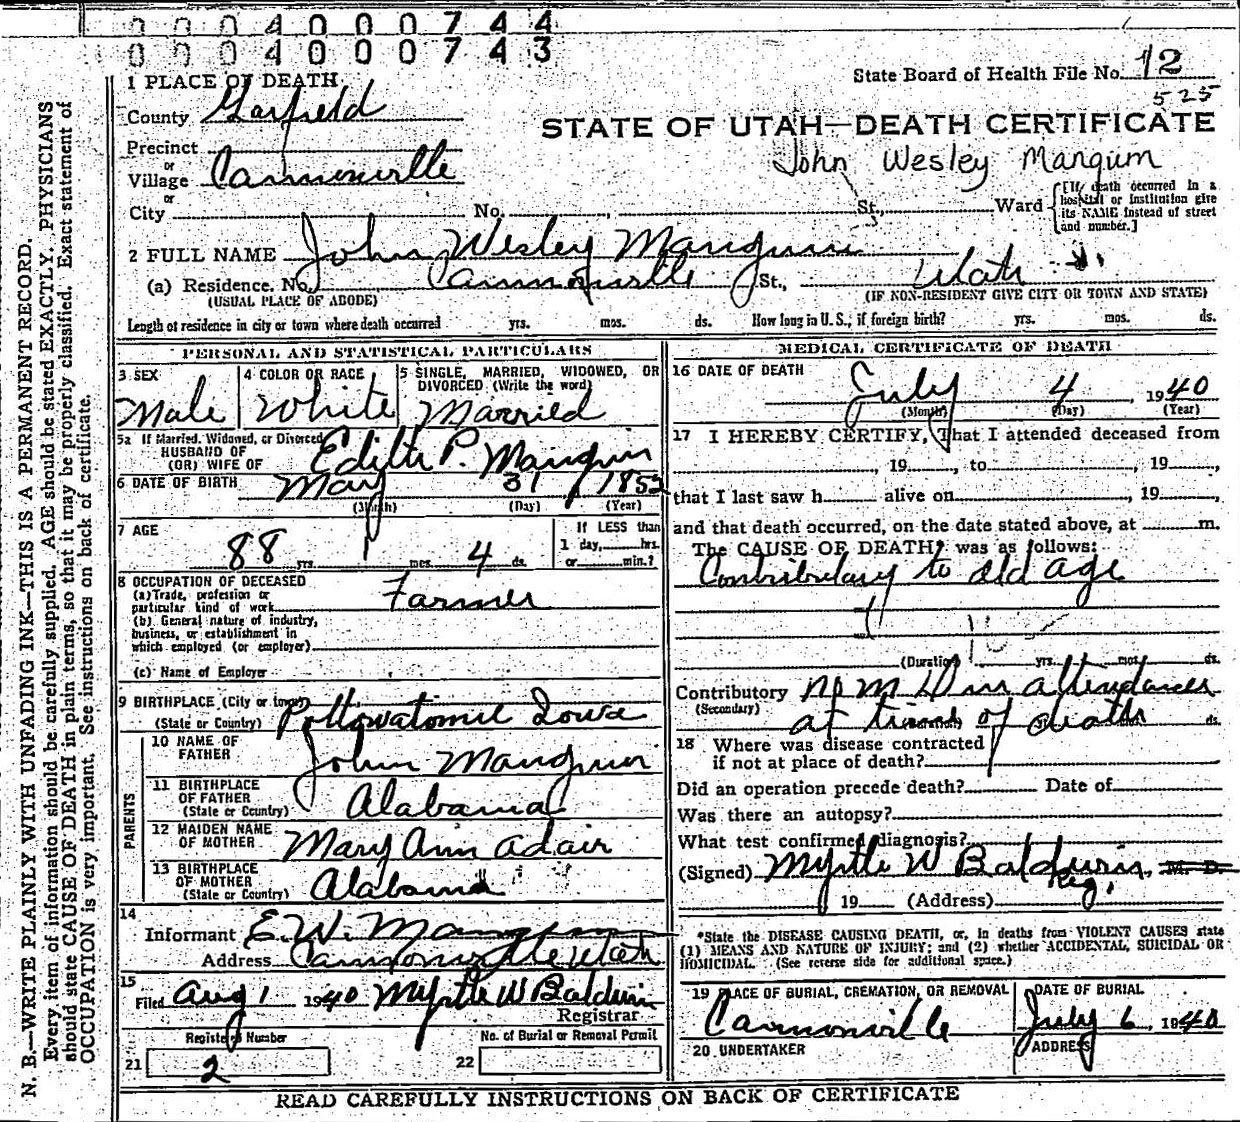 0 0 0 4 0 0 0 7 4 4
0 0 0 4 0 0 0 7 4 3
State Board of Health File No. 12
525
1 PLACE OF DEATH
County Garfield
STATE OF UTAH—DEATH CERTIFICATE
John Wesley Mangum
Precinct
or
Village Cannonville
or
City No. , St., Ward [If death occurred in a hospital or institution give its NAME instead of street and number.]
2 FULL NAME John Wesley Mangum
(a) Residence. No. Cannonville St., Utah
(USUAL PLACE OF ABODE) (IF NON-RESIDENT GIVE CITY OR TOWN AND STATE)
Length of residence in city or town where death occurred yrs. mos. ds. How long in U. S., if foreign birth? yrs. mos. ds.
PERSONAL AND STATISTICAL PARTICULARS
3 SEX
Male
4 COLOR OR RACE
White
5 SINGLE, MARRIED, WIDOWED, OR
DIVORCED (Write the word)
Married
5a If Married, Widowed, or Divorced
HUSBAND OF
(OR) WIFE OF Edith P. Mangum
6 DATE OF BIRTH May 31 1852
(Month) (Day) (Year)
7 AGE
88 yrs. 1 mos. 4 ds.
If LESS than
1 day, hrs.
or min.?
8 OCCUPATION OF DECEASED
(a) Trade, profession or
particular kind of work Farmer
(b) General nature of industry,
business, or establishment in
which employed (or employer)
(c) Name of Employer
9 BIRTHPLACE (City or town)
(State or Country) Pottowatomie Iowa
PARENTS
10 NAME OF
FATHER John Mangum
11 BIRTHPLACE
OF FATHER
(State or Country) Alabama
12 MAIDEN NAME
OF MOTHER Mary Ann Adair
13 BIRTHPLACE
OF MOTHER
(State or Country) Alabama
14
Informant E. W. Mangum
Address Cannonville Utah
15
Filed Aug 1 1940 Myrtle W Baldwin
Registrar
Registered Number
21 2
No. of Burial or Removal Permit
22
MEDICAL CERTIFICATE OF DEATH
16 DATE OF DEATH
July 4, 1940
(Month) (Day) (Year)
17 I HEREBY CERTIFY, That I attended deceased from
, 19 , to , 19 ,
that I last saw h alive on , 19 ,
and that death occurred, on the date stated above, at m.
The CAUSE OF DEATH* was as follows:
Contributary to old age
(Duration) yrs. mos. ds.
Contributory No M D in attendance
(Secondary) at time of death ds.
18 Where was disease contracted
if not at place of death?
Did an operation precede death? Date of
Was there an autopsy?
What test confirmed diagnosis?
(Signed) Myrtle W Baldwin, M. D.
Reg.
19 (Address)
*State the DISEASE CAUSING DEATH, or, in deaths from VIOLENT CAUSES state
(1) MEANS AND NATURE OF INJURY; and (2) whether ACCIDENTAL, SUICIDAL OR
HOMICIDAL. (See reverse side for additional space.)
19 PLACE OF BURIAL, CREMATION, OR REMOVAL
Cannonville
DATE OF BURIAL
July 6, 1940
20 UNDERTAKER
ADDRESS
READ CAREFULLY INSTRUCTIONS ON BACK OF CERTIFICATE
N. B.—WRITE PLAINLY WITH UNFADING INK—THIS IS A PERMANENT RECORD.
Every item of information should be carefully supplied. AGE should be stated EXACTLY. PHYSICIANS
should state CAUSE OF DEATH in plain terms, so that it may be properly classified. Exact statement of
OCCUPATION is very important. See instructions on back of certificate.